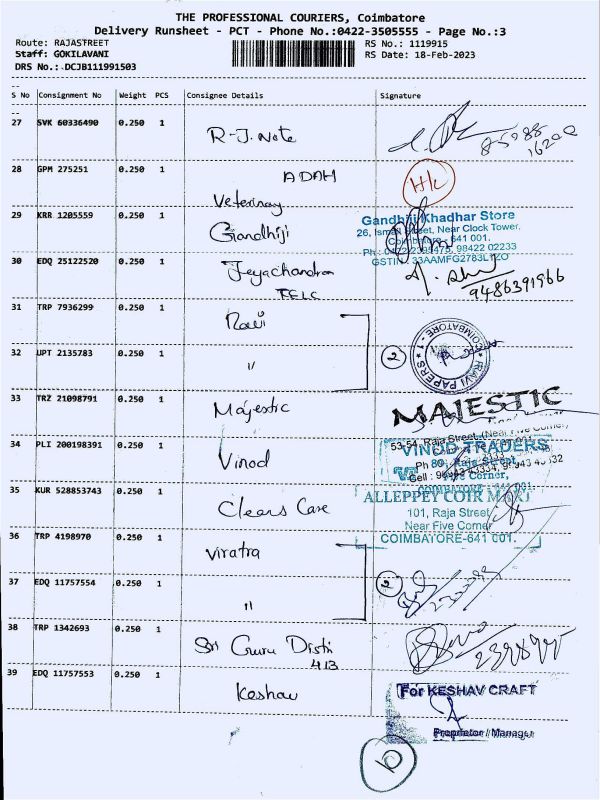 THE PROFESSIONAL COURIERS, Coimbatore
Delivery Runsheet - PCT - Phone No.:0422-3505555 - Page No.:3
Route: RAJASTREET
Staff: GOKILAVANI
DRS No.: DCJB111991503
RS No.: 1119915
RS Date: 18-Feb-2023
S No Consignment No Weight PCS Consignee Details Signature
27 SVK 60336490 0.250 1 R-J. Note
28 GPM 275251 0.250 1 ADAH Veterinary H/L
29 KRR 1205559 0.250 1 Gandhiji
Gandhiji Khadhar Store
26, Ismail Street, Near Clock Tower,
Coimbatore - 641 001.
98422 02233
GSTIN : 33AAMFG2783L1ZO
30 EDQ 25122520 0.250 1 Jeyachandran
TELC
9486391966
31 TRP 7936299 0.250 1 Ravi
32 UPT 2135783 0.250 1 "
2
RAVI PAPERS
COIMBATORE - 1
33 TRZ 21098791 0.250 1 Majestic
MAJESTIC
53-54, Raja Street, (Near Five Corner)
34 PLI 200198391 0.250 1 Vinod
VINOD TRADERS
35 KUR 528853743 0.250 1 Clears Care
ALLEPPEY COIR MART
101, Raja Street
Near Five Corner
COIMBATORE-641 001.
36 TRP 4198970 0.250 1 Viratra
37 EDQ 11757554 0.250 1 "
2
38 TRP 1342693 0.250 1 Sri Guru Disti
413
39 EDQ 11757553 0.250 1 Keshav
For KESHAV CRAFT
Proprietor / Manager
10